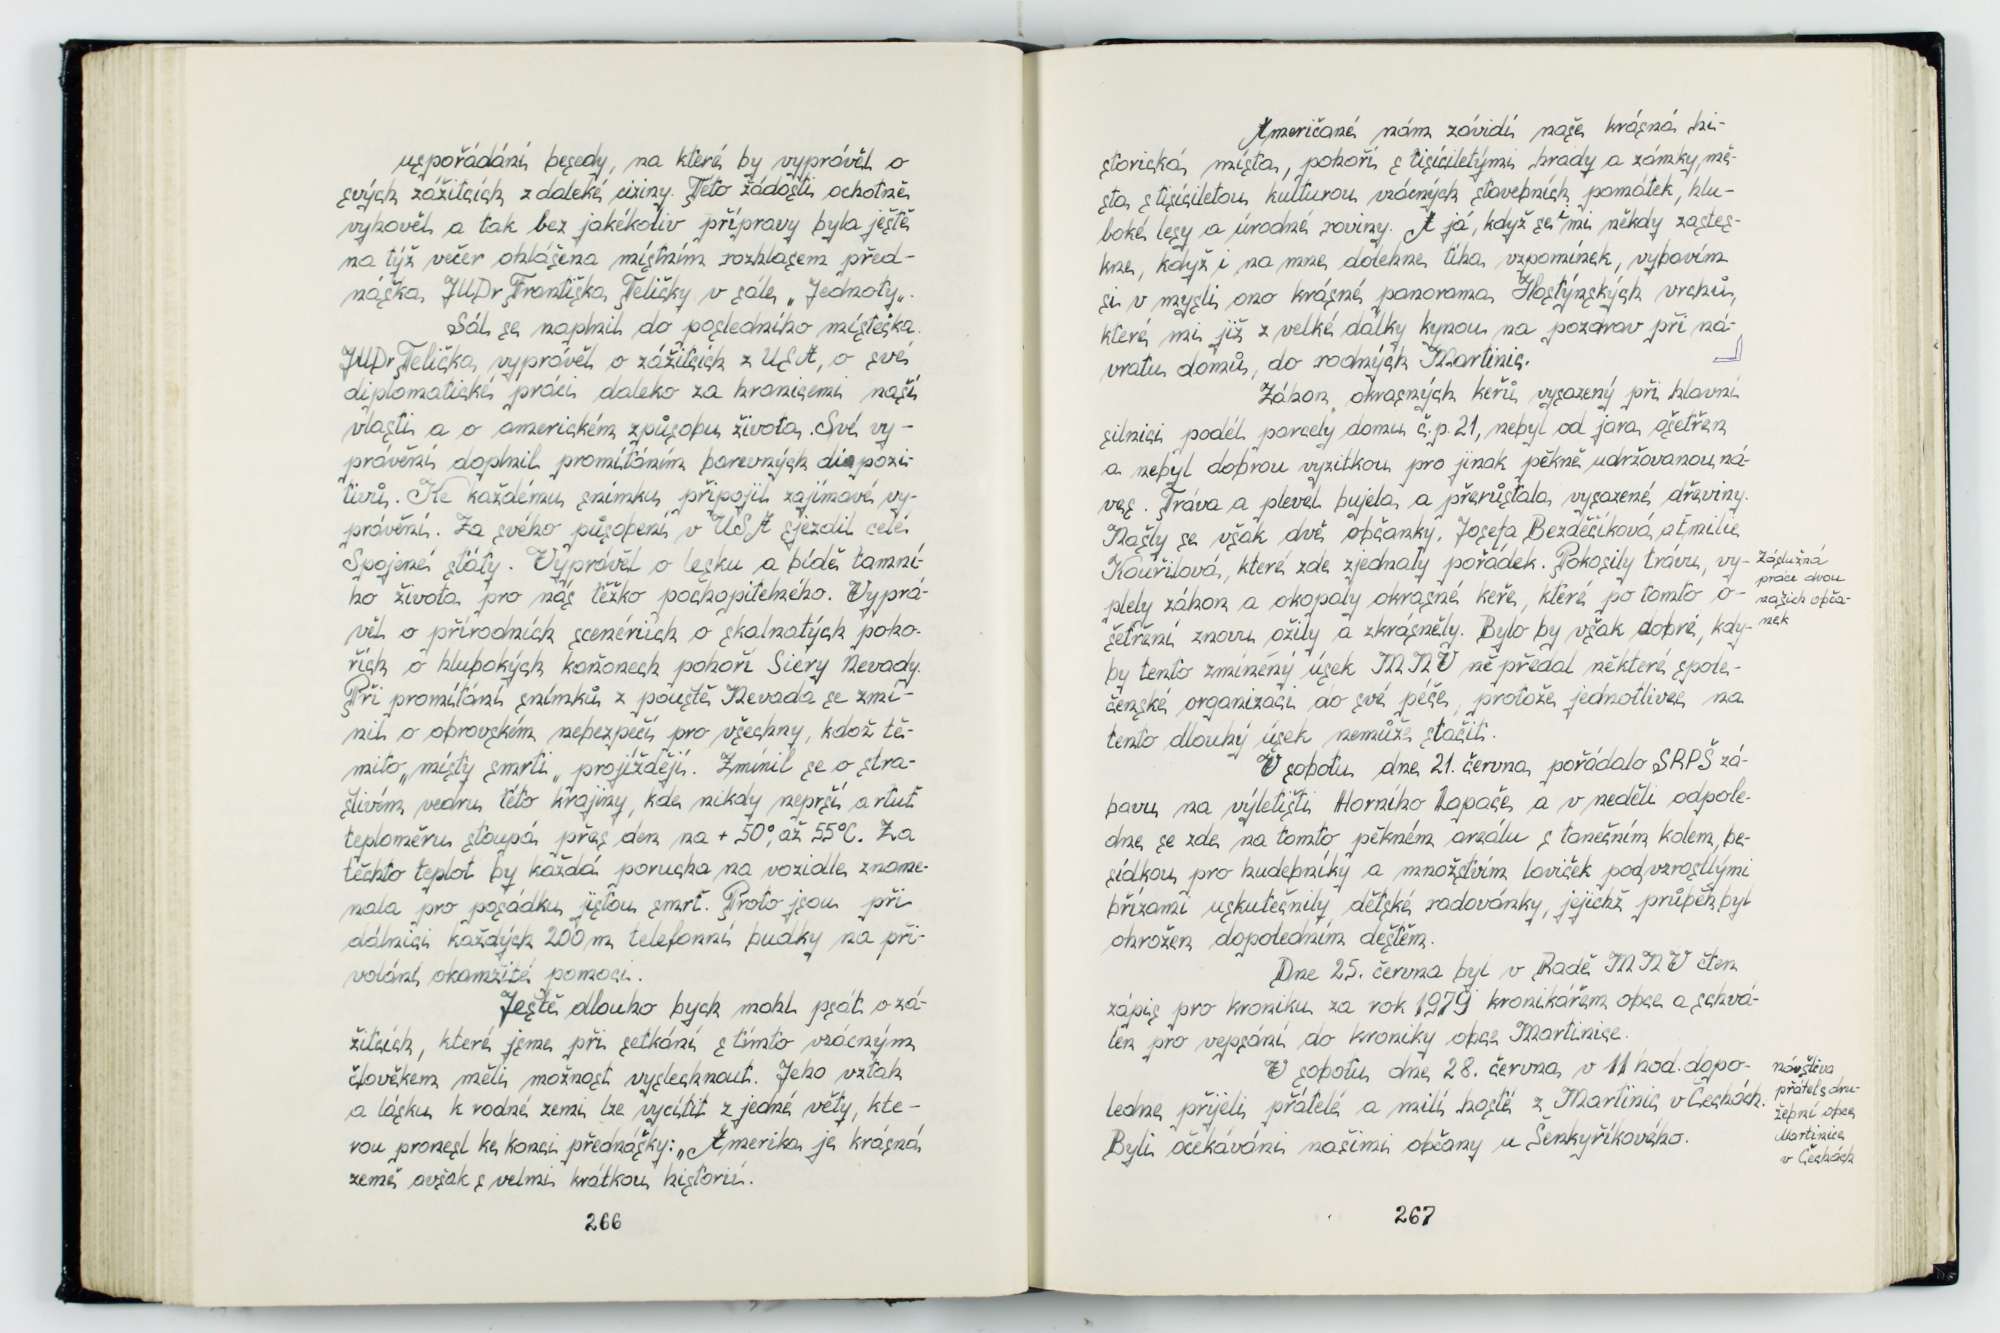 uspořádání besedy, na které by vyprávěl o
svých zážitcích z daleké ciziny. Této žádosti ochotně
vyhověl a tak bez jakékoliv přípravy byla ještě
na týž večer ohlášena místním rozhlasem před-
náška JUDr Františka Teličky v sále „Jednoty„.
Sál se naplnil do posledního místečka.
JUDr Telička vyprávěl o zážitcích z USA, o své
diplomatické práci daleko za hranicemi naší
vlasti a o americkém způsobu života. Své vy-
právění doplnil promítáním barevných diapozi-
tivů. Ke každému snímku připojil zajímavé vy-
právění. Za svého působení v USA sjezdil celé
Spojené státy. Vyprávěl o lesku a bídě tamní-
ho života pro nás těžko pochopitelného. Vyprá-
věl o přírodních scenériích o skalnatých poho-
řích o hlubokých kaňonech pohoří Siery Nevady.
Při promítání snímků z pouště Nevada se zmí-
nil o obrovském nebezpečí pro všechny, kdož tě-
mito „místy smrti„ projíždějí. Zmínil se o stra-
šlivém vedru této krajiny, kde nikdy neprší a rtuť
teploměru stoupá přes den na + 50°, až 55°C. Za
těchto teplot by každá porucha na vozidle zname-
nala pro posádku jistou smrt. Proto jsou při
dálnici každých 200 m telefonní budky na při-
volání okamžité pomoci.
Ještě dlouho bych mohl psát o zá-
žitcích, které jsme při setkání s tímto vzácným
člověkem měli možnost vyslechnout. Jeho vztah
a lásku k rodné zemi lze vycítit z jedné věty, kte-
rou pronesl ke konci přednášky: „Amerika je krásná
země avšak s velmi krátkou historií.
266
Američané nám závidí naše krásná hi-
storická místa, pohoří s tisíciletými hrady a zámky, mě-
sta s tisíciletou kulturou vzácných stavebních památek, hlu-
boké lesy a úrodné roviny. A já, když se mi někdy zastes-
kne, když i na mne dolehne tíha vzpomínek, vybavím
si v mysli ono krásné panorama Hostýnských vrchů,
které mi již z velké dálky kynou na pozdrav při ná-
vratu domů, do rodných Martinic.
Záhon okrasných keřů vysazený při hlavní
silnici podél parcely domu č.p. 21, nebyl od jara ošetřen
a nebyl dobrou vyzitkou pro jinak pěkně udržovanou ná-
ves. Tráva a plevel bujela a přerůstala vysazené dřeviny.
Našly se však dvě občanky. Josefa Bezděčíková, a Emilie
Kouřilová, které zde zjednaly pořádek. Pokosily trávu, vy-
plely záhon a okopaly okrasné keře, které po tomto o-
šetření znovu ožily a zkrásněly. Bylo by však dobré, kdy-
by tento zmíněný úsek MNV ně předal některé spole-
čenské organizaci do své péče, protože jednotlivec na
tento dlouhý úsek nemůže stačit.
Záslužná
práce dvou
našich obča-
nek
V sobotu dne 21. června pořádalo SRPŠ zá-
bavu na výletišti Horního Lapače a v neděli odpole-
dne se zde na tomto pěkném areálu s tanečním kolem, be-
sídkou pro hudebníky a množstvím laviček pod vzrostlými
břízami uskutečnily dětské radovánky, jejichž průběh byl
ohrožen dopoledním deštěm.
Dne 25. června byl v Radě MNV čten
zápis pro kroniku za rok 1979 kronikářem obce a schvá-
len pro vepsání do kroniky obce Martinice.
V sobotu dne 28. června v 11 hod. dopo-
ledne přijeli přátelé a milí hosté z Martinic v Čechách.
Byli očekáváni našimi občany u Šenkyříkového.
návštěva
přátel s dru-
žební obce
Martinice
v Čechách
267